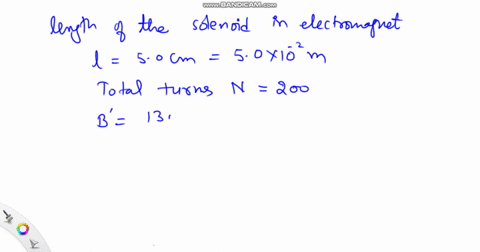 WWW.BANDICAM.COM
length of the solenoid in electromagnet
l = 5.0 cm = 5.0 × 10⁻² m
Total turns N = 200
B' = 13.